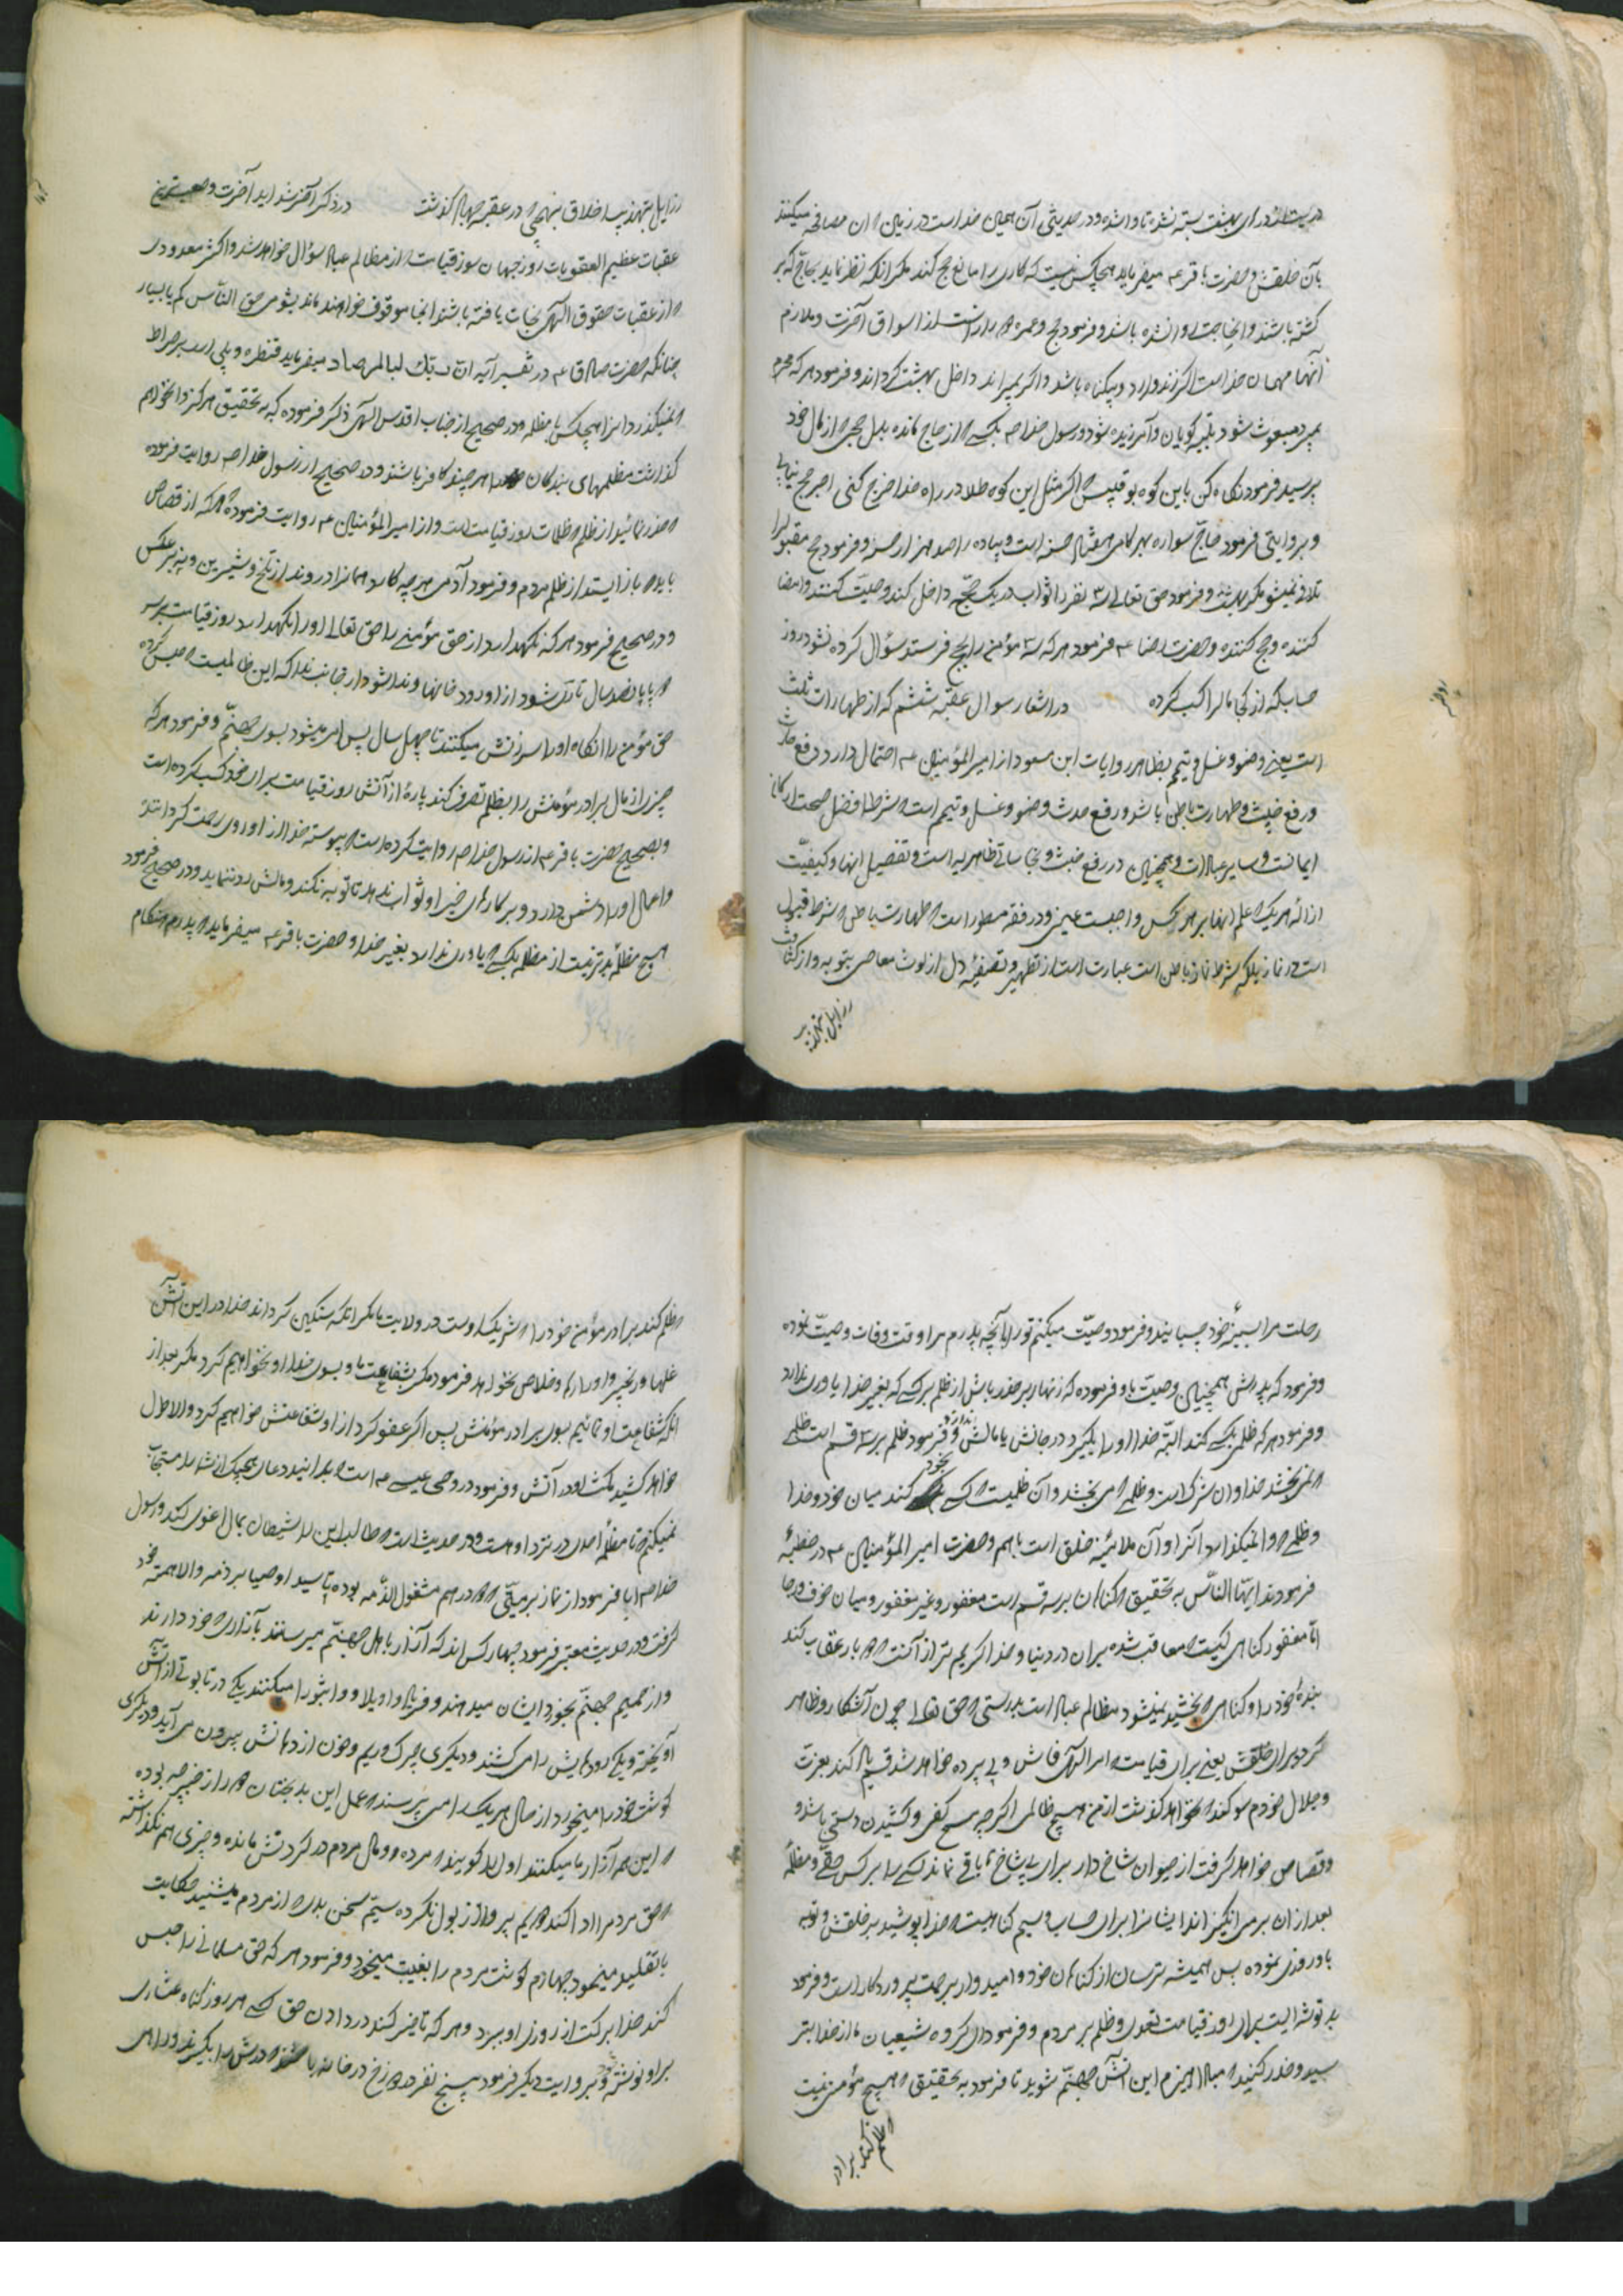 در بهشت بسته نشده تا و اشده و در حدیثی آن همین خداست در زمین که آن مصافحه میکنند
بآن خلقش و حضرت باقر ع میفرماید هیچکس نیست که کاری را مانع حج کند مگر آنکه نظر نماید بحاج که بر
کشته باشند و انحاجت روا نشده باشد و فرمود حج و عمره دو بازار است از اسواق آخرت و ملازم
آنها مهمان خداست اگر زنده دارد و بیگناه باشد و اگر بمیراند داخل بهشت گرداند و فرمود هر که محرم
بمیرد مبعوث شود تلبیه گویان و آمرزیده شود و رسول خدا ص بکسی که از حاج مانده بدل حجی که از مال خود
پرسید فرمود نگاه کن باین کوه بوقبیس که اگر مثل این کوه طلا در راه خدا خرج کنی اجر حج نیابی
و بروایتی فرمود حاج سواره بهر گامی هفتاد حسنه است و پیاده را صد هزار حسنه و فرمود حج مقبول را
تلافی نمیشود مگر بهشت و فرمود حق تعالی سه نفر را ثواب در یک حجه داخل کند وصیت کننده و امضا
کننده و حج کننده و حضرت رضا ع فرمود هر که سه مؤمن را بحج فرستد سؤال کرده نشود در روز
حساب که از کجا مال را کسب کرده در اشعار سوال عقبه ششم که از طهارات ثلث
است یعنی وضو و غسل و تیمم بظاهر روایات ابن مسعود از امیر المؤمنین ع احتمال دارد رفع حدث
و رفع خبث و طهارت باطن باشد و رفع حدث وضو و غسل و تیمم است که شرط افضل صحت ارکان
ایمانست و سایر عبادات و همچنین در رفع خبث و نجاساتی ظاهریه است و تفصیل انها و کیفیت
ازاله هر یک که علم انها بر هر کس واجبست عینی و در فقه مسطور است که طهارت باطن که شرط قبول
است در نماز بلکه شرط نماز باطن است عبارت است از تطهیر و تصفیه دل از لوث معاصی بتوبه و از کثافت
رذایل بتهذیب
رذایل بتهذیب اخلاق بنهجی که در عقبه چهارم گذشت در ذکر آخر شداید آخرت و صعبترین
عقبات عظیم العقوبات روز جهان سوز قیامت که از مظالم عباد سؤال خواهد شد و اکثر معدودی
که از عقبات حقوق الهی نجات یافته باشند انجا موقوف خواهند ماند بشومی حق الناس کم یا بسیار
چنانکه حضرت صادق ع در تفسیر آیه ان ربک لبالمرصاد میفرماید قنطره و پلی است بر صراط
که نمیگذرد از انرا هیچکس با مظلمه و در صحیح از جناب اقدس الهی ذکر فرموده که به تحقیق هرگز وا نخواهم
گذاشت مظلمهای بندگان خود را هر چند کافر باشند و در صحیح از رسول خدا ص روایت فرموده
که حذر نمائید از ظلم که ظلمات روز قیامت است و از امیر المؤمنین ع روایت فرموده که هر که از قصاص
باید که باز ایستد از ظلم مردم و فرمود آدمی هر چه کارد همانرا درود از تلخ و شیرین
و در صحیح فرمود هر که نگهدارد از حق مؤمنی را حق تعالی او را نگهدارد روز قیامت بر سر
دو پا پانصد سال تا آنکه شود از او رود خانها و ندا شود از جانب خدا که این ظالمیست که حبس کرده
حق مؤمن را انگاه او را سرزنش میکنند تا چهل سال پس امر میشود بسوی جهنم و فرمود هر که
چیزی از مال برادر مؤمنش را بظلم تصرف کند پارهٔ از آتش روز قیامت برای خود کسب کرده است
و بصحیح حضرت باقر ع از رسول خدا ص روایت کرده است که پیوسته خدا از او روی رحمت گردانیده
و اعمال او را دشمن دارد و بر کارهای خیر او ثواب ندهد تا توبه نکند و مالش رد ننماید و در صحیح فرمود
هیچ مظلمه بدتر نیست از مظلمه بکسی که یاوری ندارد بغیر خدا و حضرت باقر ع میفرماید که پدرم هنگام
رحلت مرا بسینهٔ خود چسبانید و فرمود وصیت میکنم تو را بآنچه پدرم مرا وقت وفات وصیت نموده
و فرمود که پدرش همچنین وصیت باو فرموده که زنهار بر حذر باش از ظلم بر کسی که بغیر خدا یاوری ندارد
و فرمود هر که ظلمی بکسی کند البته خدا او را بگیرد در جانش یا مالش و فرمود ظلم بر سه قسم است ظلمی
که نمی بخشد خدا و ان شرک است و ظلمی که می بخشد و آن ظلمیست که کسی بخود کند میان خود و خدا
و ظلمی که وا نمیگذارد آنرا و آن مداینهٔ خلق است باهم و حضرت امیر المؤمنین ع در خطبهٔ
فرمودند ایها الناس به تحقیق که گناهان بر سه قسم است مغفور و غیر مغفور و میان خوف و رجا
اما مغفور گناهی کیست که معاقب شده بران در دنیا و خدا کریم تر از آنست که دو بار عقاب کند
بندهٔ خود را و گناهی که بخشیده نمیشود مظالم عباد است بدرستی که حق تعالی چون آشکار و ظاهر
گردد برای خلقش یعنی برای قیامت که امر الهی فاش و بی پرده خواهد شد قسم یاد کند بعزت
و جلال خودم سوگند که نخواهد گذشت از من هیچ ظالمی اگر چه مسح کفی و کشیدن دستی باشد و
و قصاص خواهد گرفت از حیوان شاخ دار برای بی شاخ تا باقی نماند کسی را بر کس حقی و مظلمهٔ
بعد از ان بر می انگیزاند ایشانرا برای حساب و سیم گناهیست که خدا پوشیده بر خلقش و توبه
باو روزی نموده پس همیشه ترسان از گناهان خود و امیدوار برحمت پروردگار است و فرمود
بد توشه ایست برای روز قیامت تعدی و ظلم بر مردم و فرمود ای گروه شیعیان ما از خدا بتر
سید و حذر کنید که مبادا هیزم این آتش جهنم شوید تا فرمود به تحقیق که هیچ مؤمن نیست
که ظلم کند برادر
که ظلم کند برادر مؤمن خود را که شریک اوست در ولایت ما مگر آنکه سنگین گرداند خدا در این آتش
غلها و زنجیر و او را رها و خلاص نخواهد فرمود مگر بشفاعت ما و بسوی خدا او نخواهیم کرد مگر بعد از
انکه شفاعت او نمائیم بسوی برادر مؤمنش پس اگر عفو کرد از او شفاعتش خواهیم کرد و الا طول
خواهد کشید مکث او در آتش و فرمود در وحی عیسی ع است که بدانید دعای هیچیک از شما را مستجاب
نمیکنم تا مظلمهٔ احدی در نزد او هست و در حدیث است که مطالبه این را شیطان بمال اغوی کند و رسول
خدا ص ابا فرمود از نماز بر میتی که دو درهم مشغول الذمه بوده تا سید اوصیا بر ذمه والا همت خود
گرفت و در حدیث معتبر فرمود چهار کس اند که آزار باهل جهنم میرسانند با آزاری که خود دارند
و از حمیم جهنم بخورد ایشان میدهند و فریاد واویلا و واثبورا میکنند یکی در تابوتی از آتش
آویخته و یکی رودهایش را می کشند و دیگری چرک و ریم و خون از دهانش بیرون می آید و دیگری
گوشت خود را میخورد از حال هر یک را می پرسند که عمل این بد بختان دور از خیر چه بوده
که این همه آزار ما میکنند اول را گویند که مرده و مال مردم در گردنش مانده و چیزی هم نگذاشته
که حق مردم را ادا کند دویم پروا از بول نکرده سیم سخن بدی که از مردم میشنید حکایت
با تقلید مینمود چهارم گوشت مردم را بغیبت میخورد و فرمود هر که حق مسلمانی را حبس
کند خدا برکت از روزی او ببرد و هر که تاخیر کند در دادن حق کسی هر روز گناه عشاری
بر او نوشته شود و بروایت دیگر فرمود پنج نفر